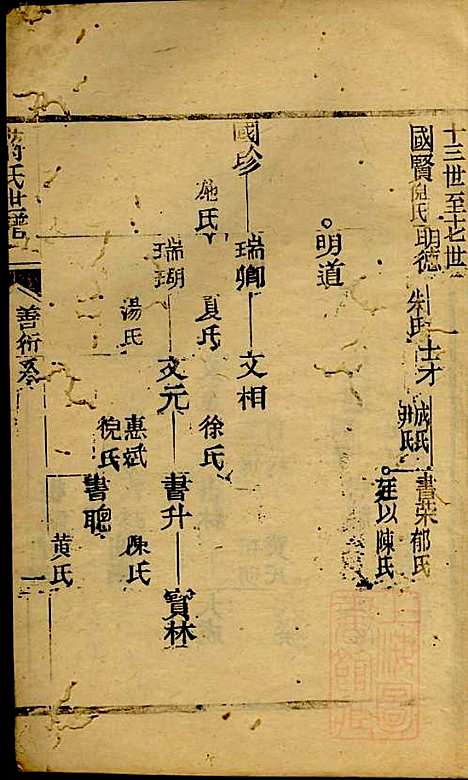 十三世至十七世
國賢 倪氏 明德 朱氏 士才 成氏 尹氏 書榮 郁氏
廷以 陳氏
明道
國珍 瑞卿 文相
施氏 夏氏 徐氏
瑞瑚 文元 書升 寶林
湯氏 惠斌 陳氏
倪氏
書聰 黄氏
氏世譜 善術 一